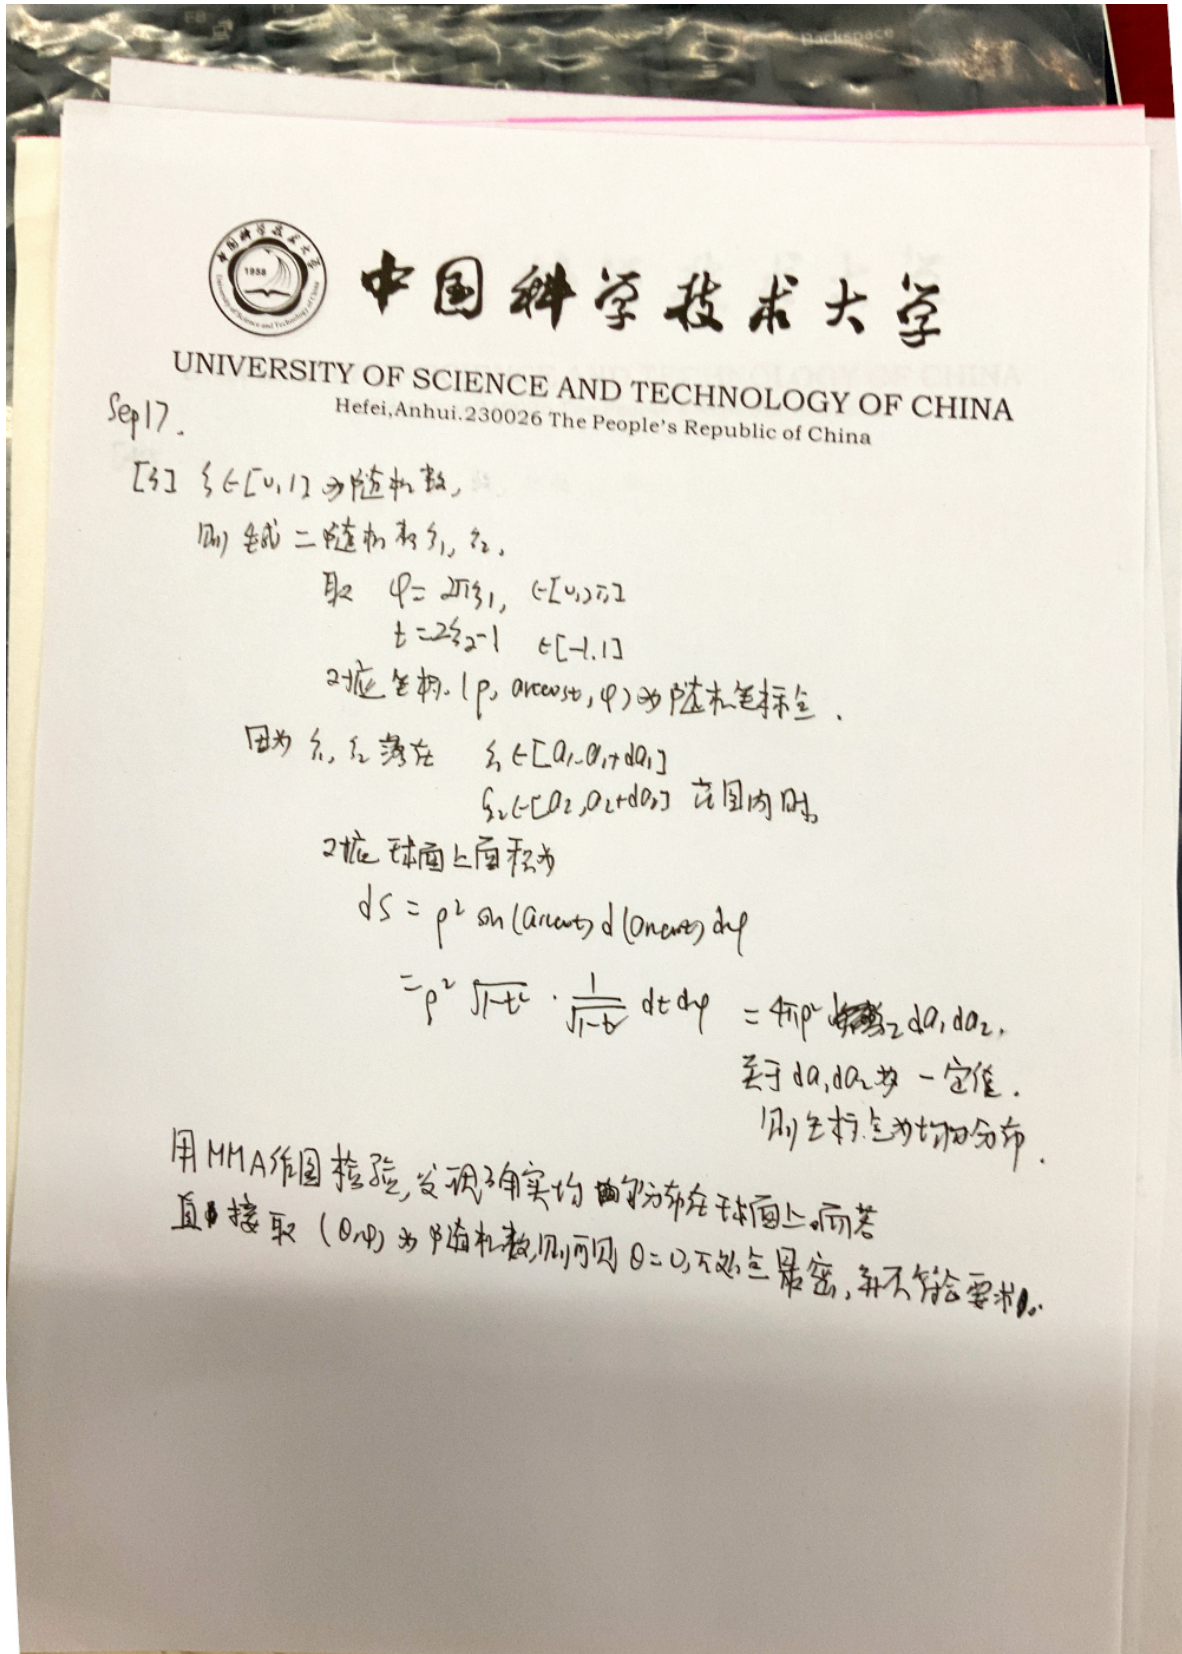 Backspace
中国科学技术大学
1958
中国科学技术大学
UNIVERSITY OF SCIENCE AND TECHNOLOGY OF CHINA
Hefei,Anhui.230026 The People's Republic of China
Sep 17.
[3] ξ∈[0,1]为随机数,
则生成二随机数ξ₁, ξ₂,
取 φ=2πξ₁, ∈[0,2π]
t=2ξ₂-1 ∈[-1,1]
对应坐标(ρ, arccost, φ)为随机坐标点.
因为 ξ₁, ξ₂落在 ξ₁∈[a₁,a₁+da₁]
ξ₂∈[a₂,a₂+da₂] 范围内时,
对应球面上面积为
dS = ρ² sin(arccost) d(arccost) dφ
=ρ² √1-t² · 1/√1-t² dt dφ = 4πρ² da₁da₂.
关于da₁da₂为一定值.
则坐标点为均匀分布.
用MMA作图检验,发现确实均匀分布在球面上.而若
直接取(θ,φ)为随机数,则可见θ=0,π处点最密,并不符合要求.